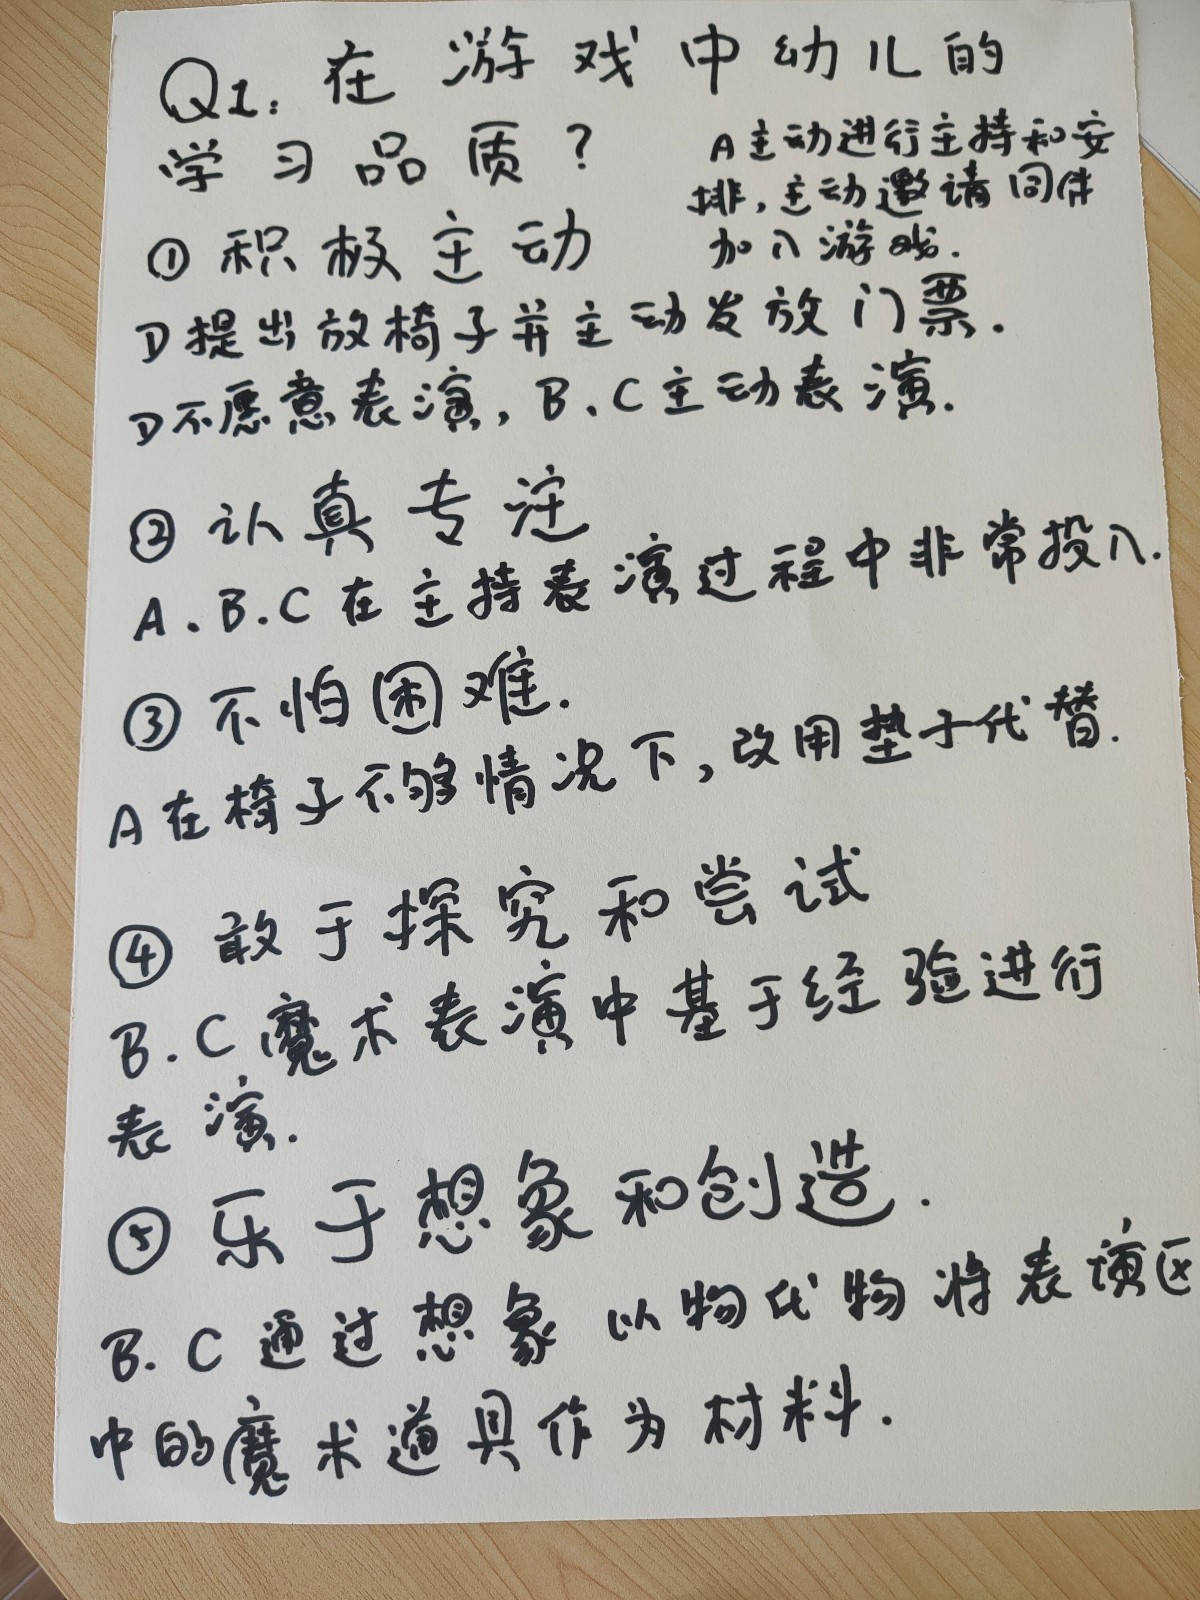 Q1:在游戏中幼儿的
学习品质?
A主动进行主持和安
排,主动邀请同伴
加入游戏.
①积极主动
D提出放椅子并主动发放门票.
D不愿意表演,B.C主动表演.
②认真专注
A.B.C在主持表演过程中非常投入.
③不怕困难.
A在椅子不够情况下,改用垫子代替.
④敢于探究和尝试
B.C魔术表演中基于经验进行
表演.
⑤乐于想象和创造.
B.C通过想象 以物代物 将表演区
中的魔术道具作为材料.